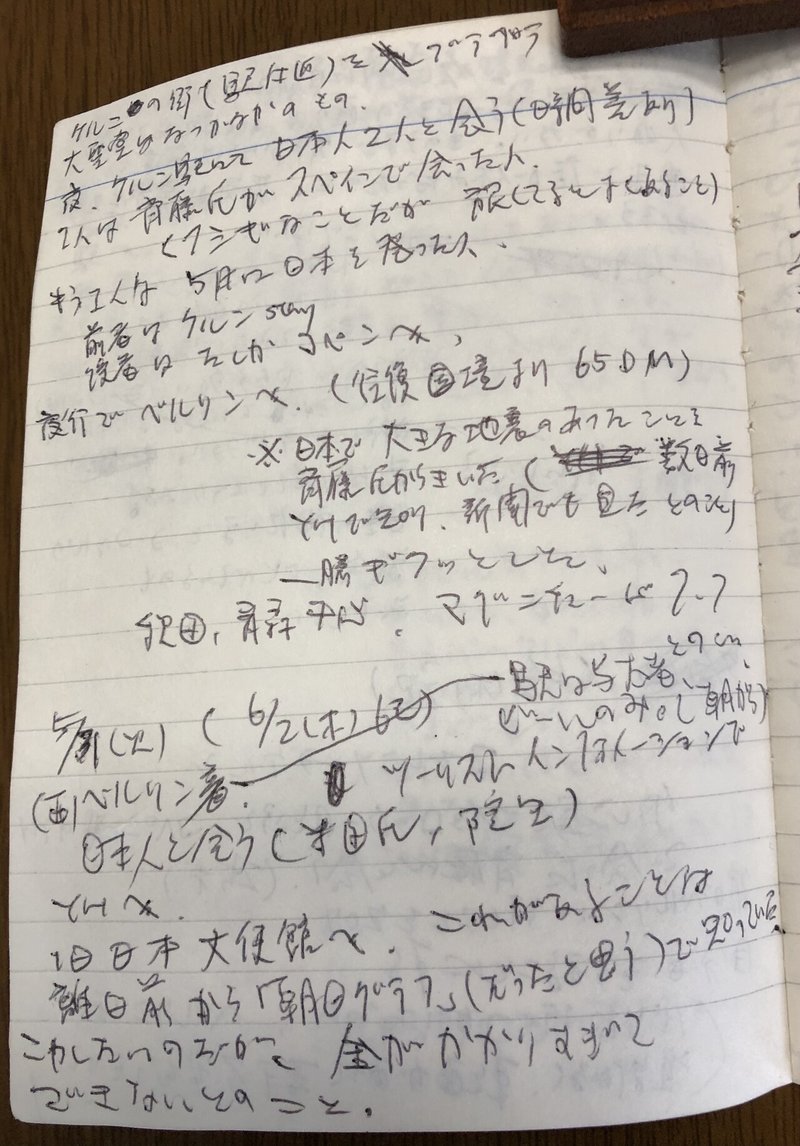 ケルンの街(駅付近)をブラブラ
大聖堂はなかなかのもの.
夜、ケルン駅にて 日本人2人と会う(時間差あり)
1人は 斉藤氏がスペインで会った人.
(フシギなことだが 旅してるとよくあること)
もう1人は 5月に日本を発った人.
前者は ケルン stay
後者は たしか コペンへ,
夜行で ベルリンへ. (往復国境より 65DM)
※日本で 大きな地震のあったことを
斉藤氏からきいた ( 数日前
YHで知り、新聞でも見たとのこと)
一瞬ギクッとした、
秋田、青森 中心. マグニチュード 7.7
とのこと.
5/31(火) ( 6/2(木)
駅は
ビールのみ 朝から)
(西)ベルリン着. ツーリストインフォメーションで
日本人と会う(米田氏, 院生)
YHへ.
旧日本大使館へ. これがあることは
離日前から「朝日グラフ」(だったと思う)で知っていた.
こわしたいのだが、金がかかりすぎて
できないとのこと.